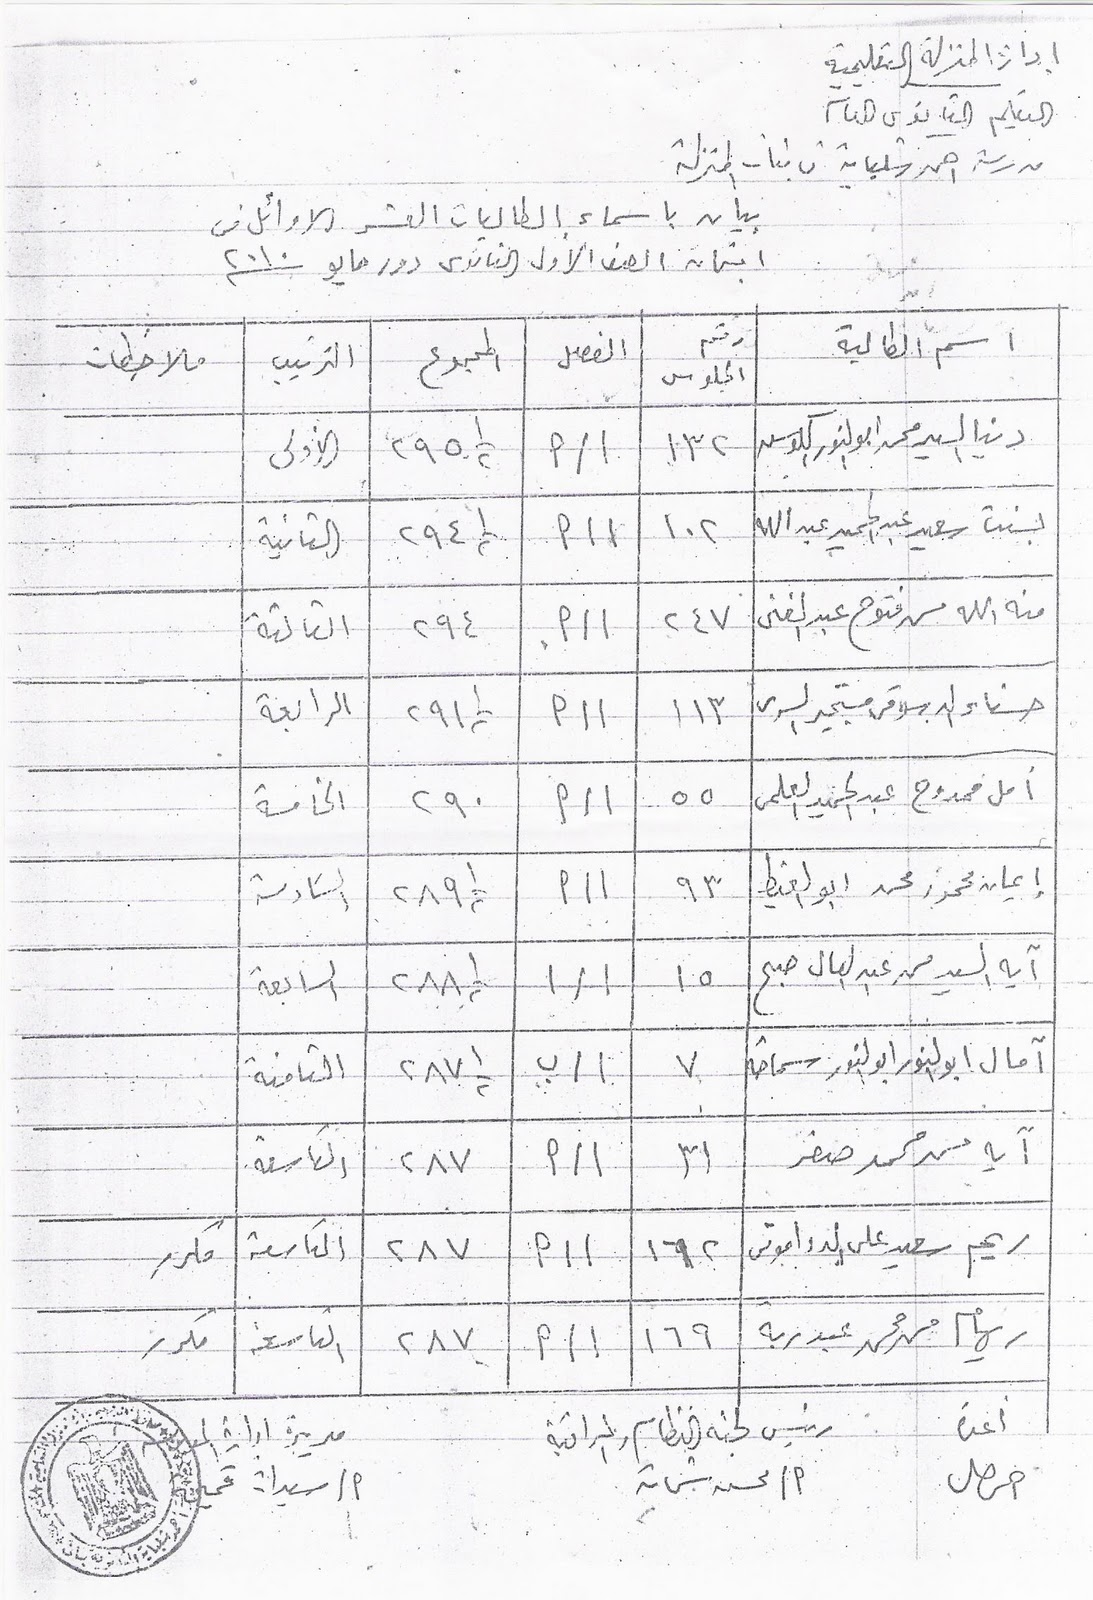 إدارة المنزلة التعليمية
التعليم الثانوى العام
مدرسة احمد شلباية ث بنات المنزلة
بيان باسماء الطالبات العشر الاوائل فى
امتحان الصف الأول الثانوى دور مايو ٢٠١٠
اسم الطالبة رقم الجلوس الفصل المجموع الترتيب ملاحظات
دنيا السيد محمد ابوالنور ١٣٢ ١/أ ٢٩٥ ١/٢ الأولى
بسنت سعيد عبدالحميد عبدالله ١٠٢ ١/أ ٢٩٤ ١/٢ الثانية
منه الله حسن فتوح عبدالغنى ٢٤٧ ١/أ ٢٩٤ الثالثة
حسناء الدسوقى ١١٣ ١/أ ٢٩١ ١/٢ الرابعة
أمل ممدوح عبدالحميد العلمى ٥٥ ١/أ ٢٩٠ الخامسة
إيمان محمود محمد ابوالغيط ٩٣ ١/أ ٢٨٩ ١/٢ السادسة
آيه السيد محمد عبدالعال صبح ١٥ ١/١ ٢٨٨ ١/٢ السابعة
آمال ابوالنور ابوالنور سماحة ٧ ١/ب ٢٨٧ ١/٢ الثامنة
آيه حسن محمد صقر ٣١ ١/أ ٢٨٧ التاسعة
ريهم سعيد على ١٦٢ ١/أ ٢٨٧ التاسعة مكرر
ريهام حسن محمد عبدربة ١٦٩ ١/أ ٢٨٧ التاسعة مكرر
أعده رئيس لجنة النظام والمراقبة مديرة ادارة
أ/محسن أ/سعيدة